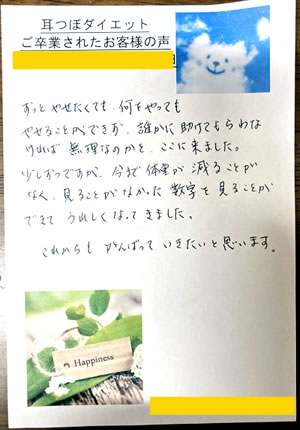 耳つぼダイエット
ご卒業されたお客様の声
ずっとやせたくても、何をやっても
やせることができず、誰かに助けてもらわな
ければ無理なのかと、ここに来ました。
少しずつですが、今まで体重が減ることが
なく、見ることがなかった数字を見ることが
できてうれしくなってきました。
これからもがんばっていきたいと思います。
Happiness